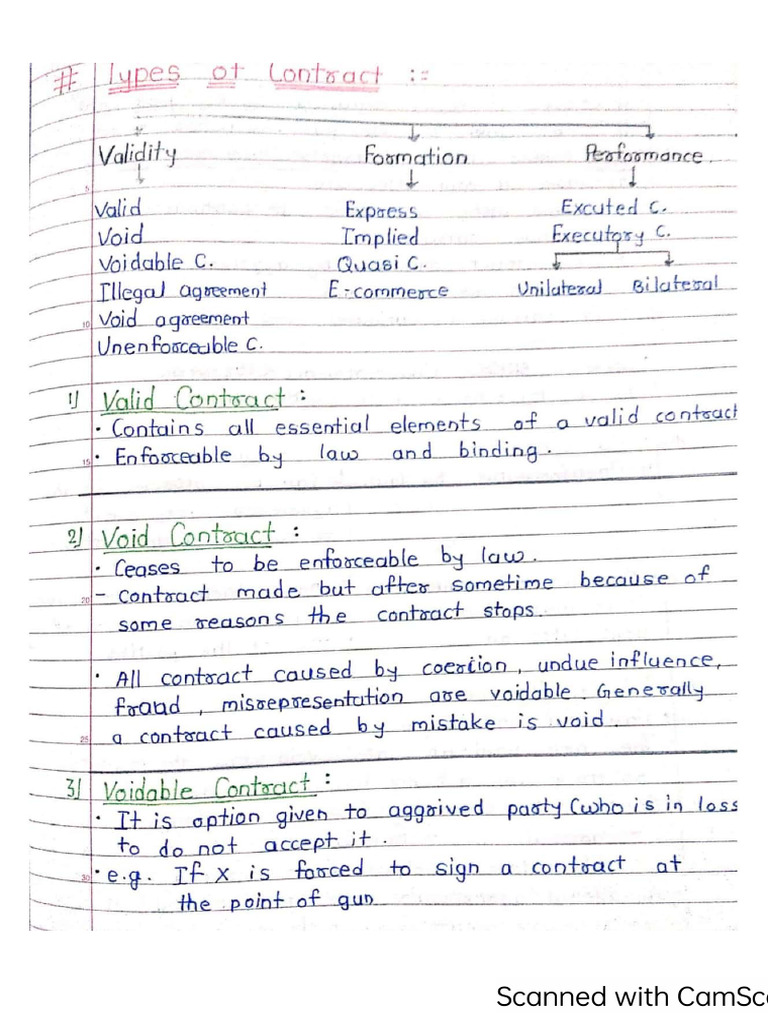 # Types of Contract :=
Validity Formation Performance
Valid Express Excuted C.
Void Implied Executory C.
Voidable C. Quasi C.
Illegal agreement E-commerce Unilateral Bilateral
Void agreement
Unenforceable C.
1) Valid Contract :
• Contains all essential elements of a valid contract
• Enforceable by law and binding.
2) Void Contract :
• Ceases to be enforceable by law.
- contract made but after sometime because of
some reasons the contract stops.
• All contract caused by coertion, undue influence,
fraud, misrepresentation are voidable. Generally
a contract caused by mistake is void.
3) Voidable Contract :
• It is option given to aggrived party (who is in loss
to do not accept it.
• e.g. If X is forced to sign a contract at
the point of gun
Scanned with CamSc